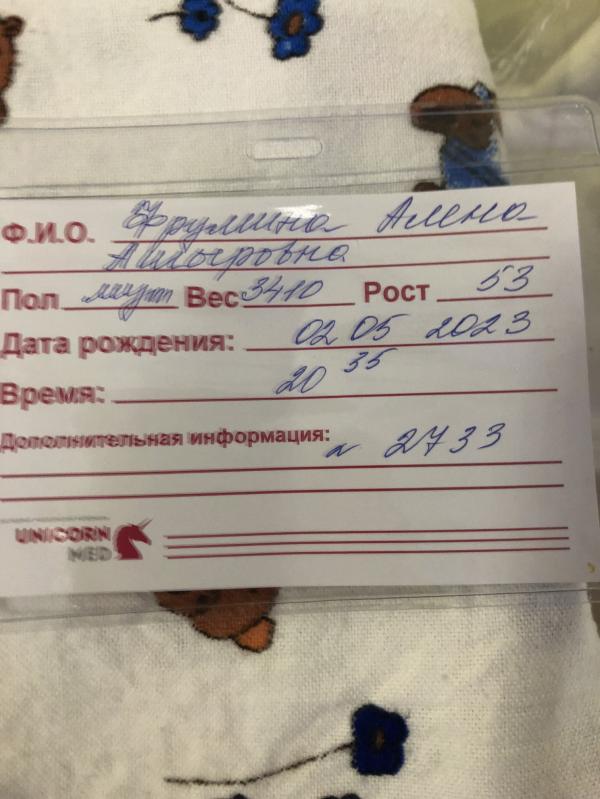 Ф.И.О. Фрумина Алена
Пол муж Вес 3410 Рост 53
Дата рождения: 02 05 2023
Время: 20 35
Дополнительная информация:
2733
UNICORN
MED